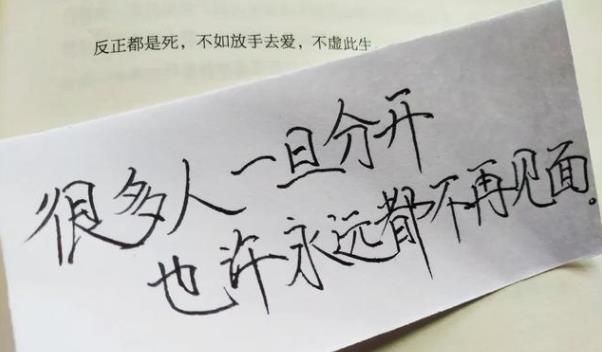 反正都是死，不如放手去爱，不虚此生
很多人一旦分开
也许永远都不再见面。